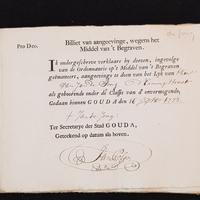 de Jong
Pro Deo. Billiet van aangeevinge, wegens het
Middel van 't Begraven.
Ik ondergeschreve verklaare by deezen, ingevolge
van de Ordonnantie op 't Middel van 't Begraven
geëmaneert, aangevinge te doen van het Lyk van
de Jong
als gehoorende onder de Classis van d'onvermogende,
Gedaan binnen GOUDA den 16
de Jong
Ter Secretarye der Stad GOUDA,
Geteekend op datum als boven.